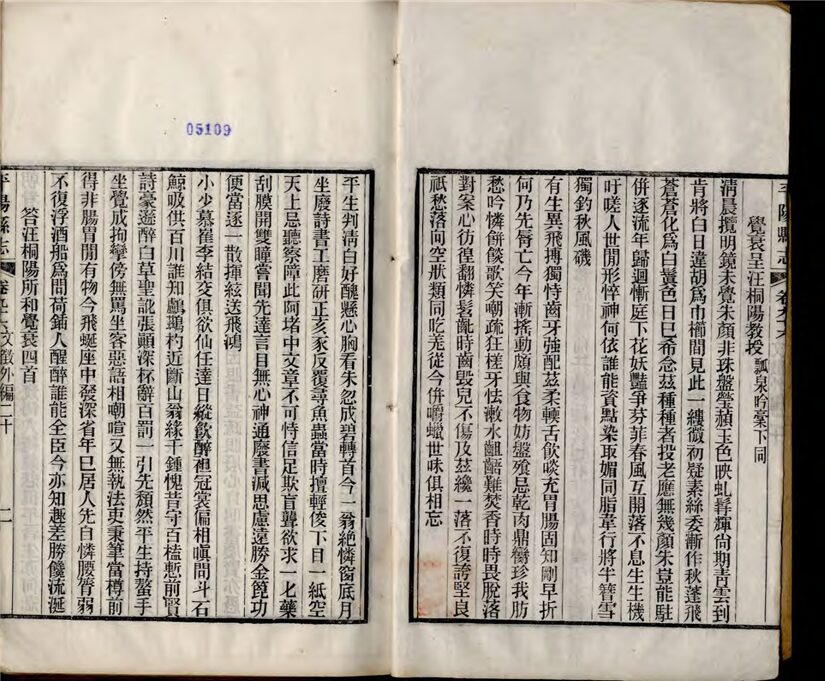 覺衰呈汪桐陽教授　瓢泉吟藁下同
清晨攬明鏡未覺朱顏非珠盤瑩蘋玉色映虬髯輝尚期青雲到
肯將白日違胡爲巾櫛間見此一縷微初疑素絲委漸作秋蓬飛
蒼蒼化爲白鬒色日巳希念茲種種者投老應無幾顏朱豈能駐
併逐流年歸迴慚庭下花妖豔爭芬菲春風互開落不息生生機
吁嗟人世間形悴神何依誰能資點染取媚同脂韋行將半簪雪
獨釣秋風磯
有生異飛搏獨恃齒牙強配茲柔輭舌飲啖充胃腸固知剛早折
何乃先脣亡今年漸搖動頗與食物妨盤飧忌乾肉鼎臠珍我肪
愁吟憐餅餤歌笑嘲疏狂槎牙怯漱水齟齬難焚香時時畏脫落
對案心彷徨翻憐髫齓時齒毀兒不傷及茲纔一落不復誇堅良
祇愁落同空狀類同吃羌從今併嚼蠟世味俱相忘
平生判淸白好醜懸心胸看朱忽成碧轉首今一翁絶憐窗底月
坐廢詩書工磨硏正亥豕反覆尋魚蟲當時擅輕俊下目一紙空
天上忌聽察障此阿堵中文章不可恃信足欺盲聾欲求一匕藥
刮膜開雙瞳嘗聞先達言目無心神通廢書減思慮遠勝金篦功
便當逐一散揮絃送飛鴻
小少慕崔李結交俱欲仙任達日縱飲醉袒冠裳偏相嗔問斗石
鯨吸供百川誰知鸕鷀杓近斷山翁緣千鍾愧昔守百榼慙前賢
詩豪遜醉白草聖訛張顚深杯辭百罰一引先頽然平生持螯手
坐覺成拘攣傍無罵坐客惡語相嘲喧又無執法吏秉筆當樽前
得非腸胃間有物今飛蜒座中發深省年巳居人先自憐腰膂弱
不復浮酒船爲問荷鍤人醒醉誰能全臣今亦知趣差勝饞流涎
答汪桐陽所和覺衰四首
平陽縣志　卷九十六文徵外編二十　二
平陽縣志　卷九十六
05109